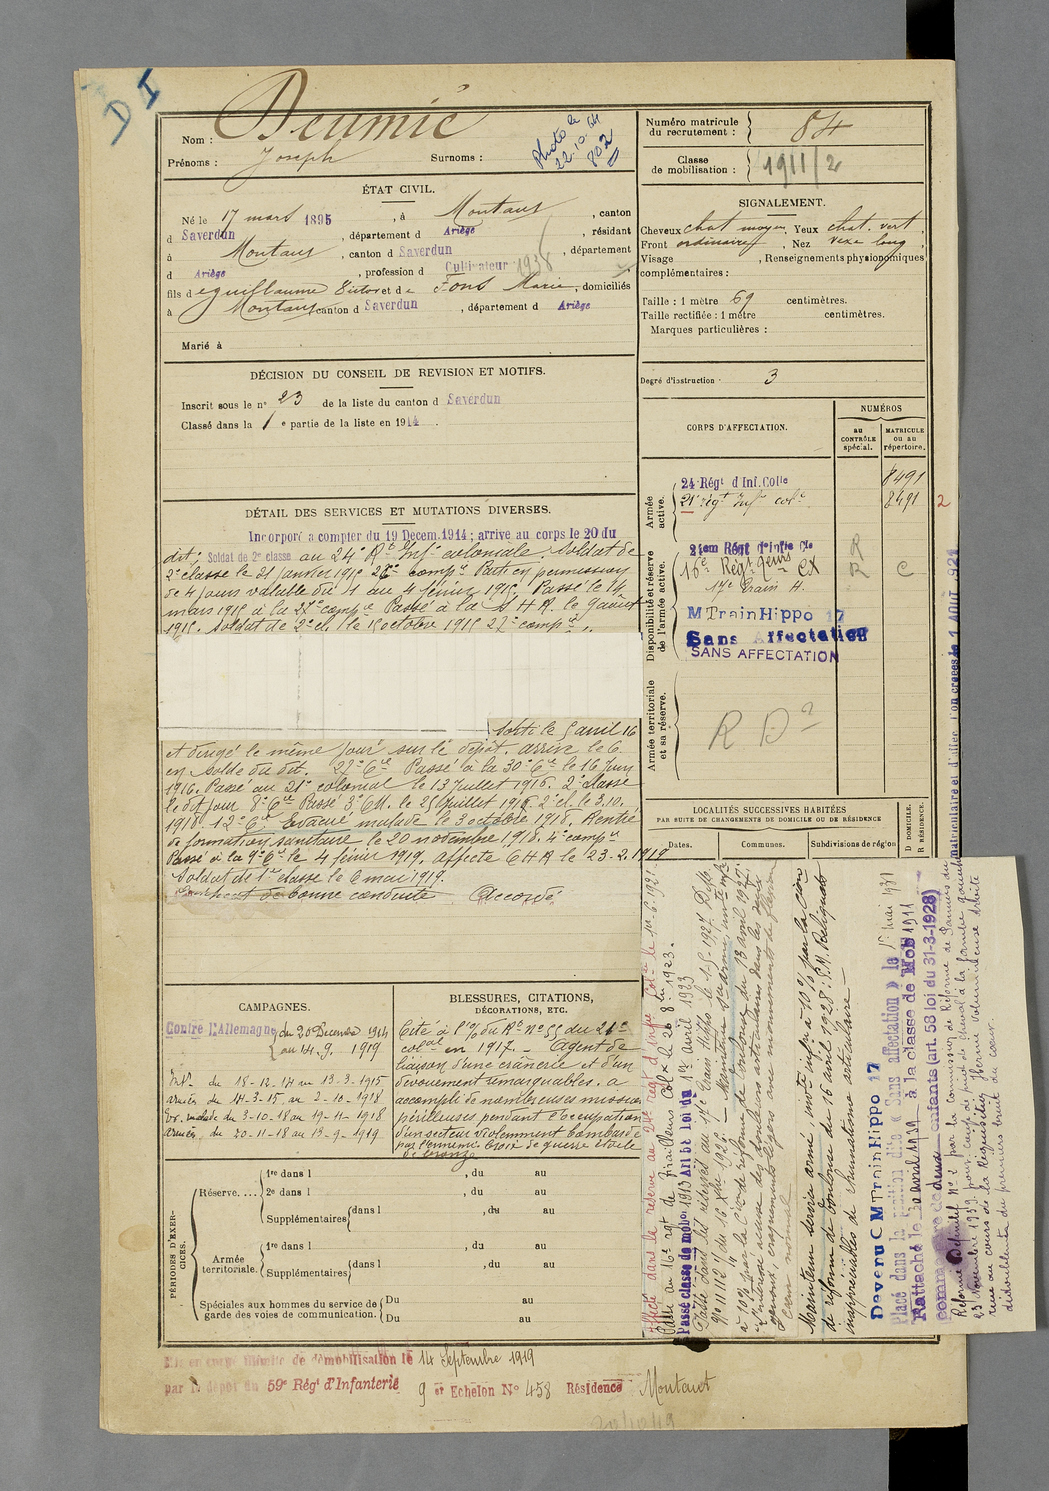 DI
Nom : Deumié
Prénoms : Joseph Surnoms :
Photo le
22.10.64
802
Numéro matricule
du recrutement : 84
Classe
de mobilisation : 1911/2
ÉTAT CIVIL.
Né le 17 mars 1895, à Montaut, canton
d Saverdun, département d Ariège, résidant
à Montaut, canton d Saverdun, département
d Ariège, profession d Cultivateur 1938
fils d e Guillaume Victor et d e Fons Marie, domiciliés
à Montaut canton d Saverdun, département d Ariège
Marié à
SIGNALEMENT.
Cheveux chat moyen, Yeux chat. vert,
Front ordinaire, Nez vexe long,
Visage , Renseignements physionomiques
complémentaires :
Taille : 1 mètre 69 centimètres.
Taille rectifiée : 1 mètre centimètres.
Marques particulières :
Degré d'instruction : 3
DÉCISION DU CONSEIL DE REVISION ET MOTIFS.
Inscrit sous le n° 23 de la liste du canton d Saverdun
Classé dans la 1 e partie de la liste en 1914.
CORPS D'AFFECTATION.
NUMÉROS
au
CONTRÔLE
spécial.
MATRICULE
ou au
répertoire.
Armée
active.
24 Régt d'Inf. Colle 8491
21e régt Infie colle 8491 2
Disponibilité et réserve
de l'armée active.
21em Régt d'Infie Cle R
16e Régt CX R C
17e Train H.
M Train Hippo 17
Sans Affectation
SANS AFFECTATION
Armée territoriale
et sa réserve.
R D 2
DÉTAIL DES SERVICES ET MUTATIONS DIVERSES.
Incorporé a compter du 19 Decem. 1914; arrive au corps le 20 du
dit; Soldat de 2e classe au 24e Rt Infie coloniale. Soldat de
2e classe le 31 janvier 1915 26e compie Parti en permission
de 4 jours valable du 1 au 4 février 1915. Passé le 14
mars 1915 à la 28e compie Passé à la S H R. le 9 août
1915. Soldat de 2e cl. le 15 octobre 1915 27e compie
Sorti le 5 avril 16
et dirigé le même jour sur le dépôt. arrivé le 6.
en solde du dit. 27e Cie Passé à la 30e Cie le 16 Juin
1916. Passé au 21e colonial le 13 Juillet 1916. 2e classe
le dit jour 8e Cie Passé 3e CM. le 25 Juillet 1916. 2e cl. le 3.10.
1918. 12e Cie Evacué malade le 3 octobre 1918. Rentré
de formation sanitaire le 20 novembre 1918. 4e compie
Passé à la 9e Cie le 4 février 1919. affecté C H R le 23-2.1919
Soldat de 1re classe le 6 mai 1919.
Certificat de bonne conduite Accordé
LOCALITÉS SUCCESSIVES HABITÉES
PAR SUITE DE CHANGEMENTS DE DOMICILE OU DE RÉSIDENCE
Dates. Communes. Subdivisions de région
D DOMICILE.
R RÉSIDENCE.
CAMPAGNES.
Contre l'Allemagne du 20 Decembre 1914
au 14. 9. 1919
Intr du 18-12-14 au 13-3-1915
armées du 14-3-15 au 2-10-1918
Ev. malade du 3-10-18 au 19-11-1918
armées, du 20-11-18 au 13-9-1919
BLESSURES, CITATIONS,
DÉCORATIONS, ETC.
Cité à l'O/ du Rt N° 55 du 21e
colal en 1917. Agent de
liaison d'une crânerie et d'un
dévouement remarquables. a
accompli de nombreuses missions
périlleuses pendant l'occupation
d'un secteur violemment bombardé
par l'ennemi. Croix de guerre étoile
de bronze
PÉRIODES D'EXERCICES.
Réserve....
1re dans l , du au
2e dans l , du au
Supplémentaires dans l , du au
Armée
territoriale.
1re dans l , du au
Supplémentaires dans l , du au
Spéciales aux hommes du service de
garde des voies de communication.
Du au
Du au
Affecté dans la réserve au 24e regt d'Infie Colle le 1er.6.1921.
Passé au 16e rgt de Tirailleurs Col x le 26 8bre 1923.
Passé classe de mob. 1913 Art 58 Loi du 1er Avril 1923
Passé dans les réserves au 17e Train Hippo le 1.5.1927
N° 11112 1/4 du 16 Xbre 1925. Maintenu serv. armé
à 10% par la Cion de réforme de Toulouse du 13 avril 1927.
Maintenu service armé invté infre à 10% par la Cion
de réforme de Toulouse du 16 avril 1928: P.V. Reliquats
inappréciables de rhumatisme articulaire
Devenu C M Train Hippo 17
Placé dans la position dite « Sans affectation » le 1r mai 1931
Rattaché le 30 avril 1919 à la classe de Mob 1911
comme père de deux enfants (art. 58 loi du 31-3-1928)
Réformé Définitif N° 2 par la Commission de Réforme de Pamiers du
23 Novembre 1939 pour coup de pied de cheval à la jambe gauche
reçu au cours de la Réquisition,
dédoublement du premier bruit du cœur.
matriculaire et d'allec
Mis en congé illimité de démobilisation le 14 Septembre 1919
par le dépôt du 59e Régt d'Infanterie 9 er Echelon N° 458 Résidence Montaut